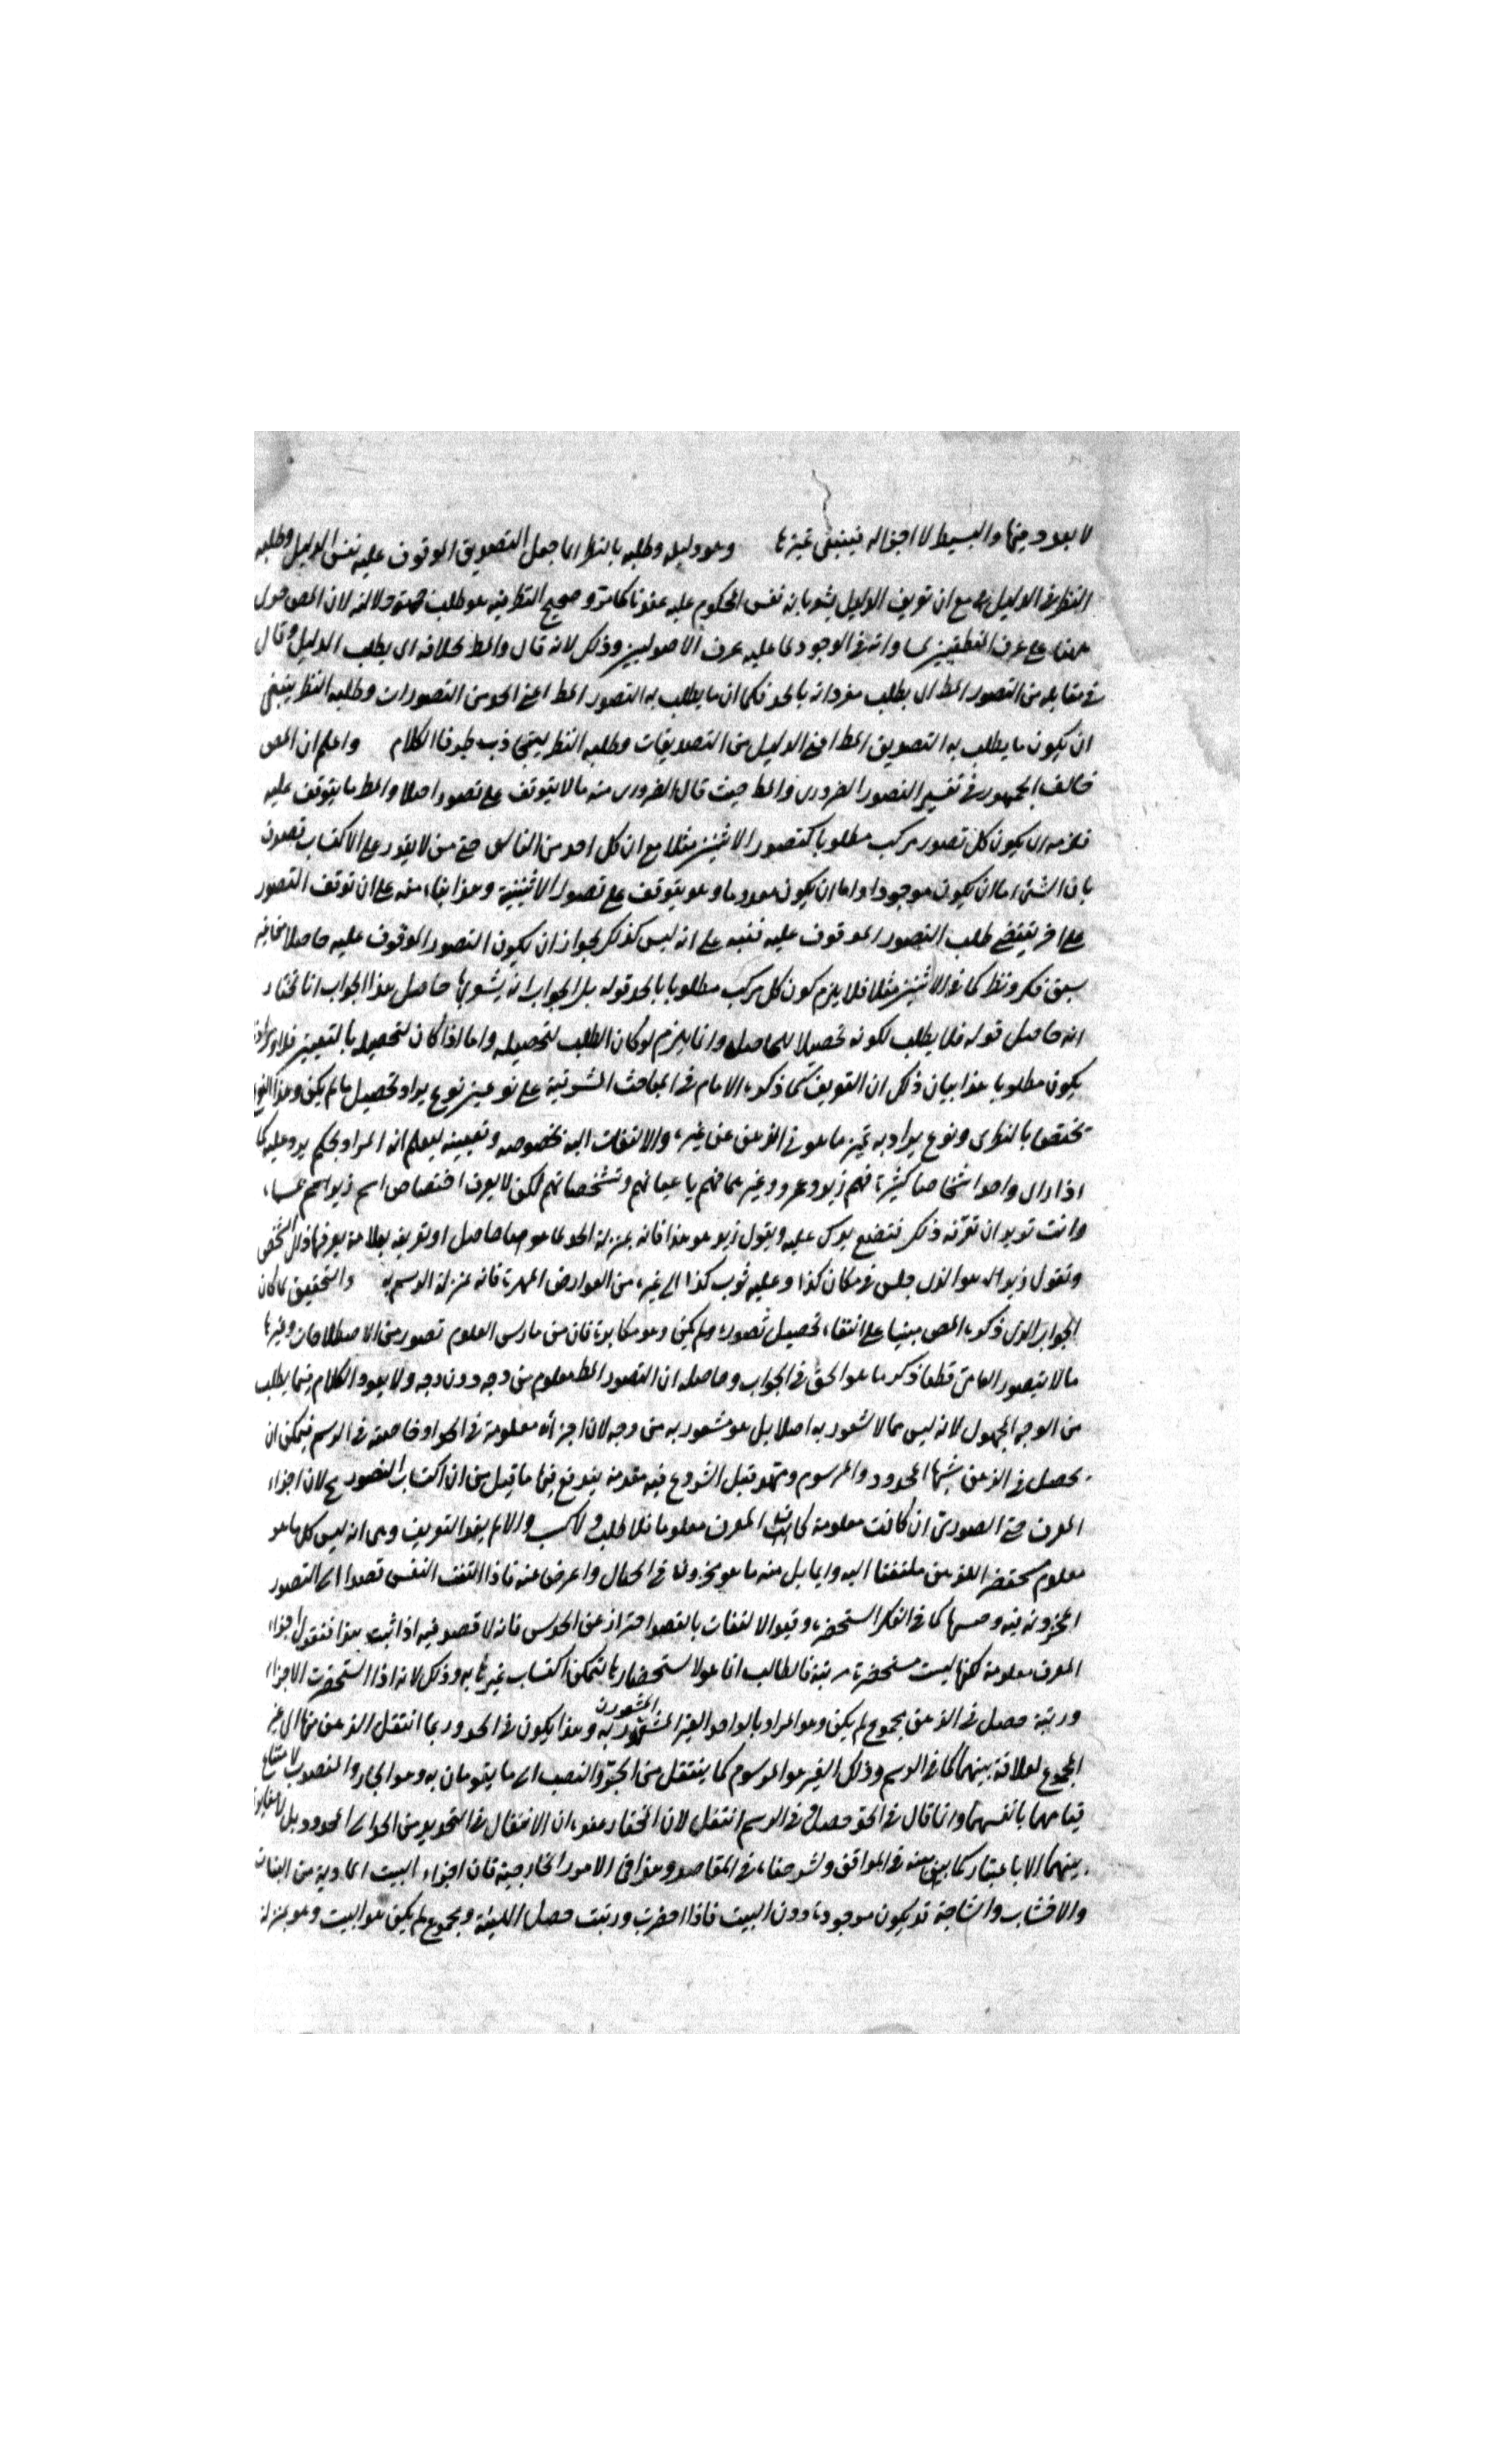 لا يعود فيها والبسيط لا اجزاله فينبغي تميزها وهو دليله وطلبه بالنظر لما جعل التصديق الموقوف عليه نفس الدليل وطلبه
النظر في الدليل مع ان تعريف الدليل يشعر بانه نفس المحكوم عليه عندنا كما مر و صحيح النظر فيه هو طلب جهة دلالته لان المص حمل
هنا على عرف المنطقيين لمساواته في الوجود لما عليه عرف الاصوليين وذلك لانه قال والمط بخلافه اى يطلب الدليل وقال
في مقابله من التصور المط اى يطلب مفرداته بالحد فكما ان ما يطلب به التصور المط اعني الحد من التصورات وطلبه النظر ينبغي
ان يكون ما يطلب به التصديق المط اعني الدليل من التصديقات وطلبه النظر ليتجاذب طرفا الكلام واعلم ان المص
خالف الجمهور في تفسير التصور الضرورى والمط حيث قال الضرورى منه ما لا يتوقف على تصور اصلا والمط ما يتوقف عليه
فلزمه ان يكون كل تصور مركب مطلوبا كتصور الاثنين مثلا مع ان كل احد من الناس حتى من لا يقدر على الاكتساب
بان الشئ اما ان يكون موجودا واما ان يكون معدوما وهو يتوقف على تصور الاثنينية وهذا بناء منه على ان توقف التصور
على اخر يقتضي طلب التصور الموقوف عليه فنبه على انه ليس كذلك لجواز ان يكون التصور الموقوف عليه حاصلا من غير
سبق فكر ونظر كما في الاثنين مثلا فلا يلزم كون كل مركب مطلوبا بالحد قوله بل الجواب انه يشعر بها حاصل هذا الجواب انا نختار
انه حاصل قوله فلا يطلب لكونه تحصيلا للحاصل وانما يلزم لو كان الطلب لتحصيله واما اذا كان لتحصيل بالتعيين فلا
يكون مطلوبا هذا بيان ذلك ان التعريف كما ذكره الامام في المباحث المشرقية على نوعين نوع يراد تحصيل ما لم يكن وهذا النوع
تختص بالنظرى ونوع يراد به تميز ما هو في الذهن عن غيره والالتفات اليه بخصوصه وتعيينه ليعلم انه المراد بحكم يرد عليه كما
اذا راى واحد اشخاصا كثيرة فهم زيد وعمرو وغيرهما فهم باعيانهم وتشخصاتهم لكن لا يعرف اختصاص اسم زيد اسم مسماه
وانت تريد ان تعرفه ذلك فتضع يدك عليه ويقول زيد هو هذا فانه بمنزلة الحد لما هو حاصل او تعريفه بعلامة يعرفها ذلك الشخص
وتقول زيد هو الذى جلس في مكان كذا وعليه ثوب كذا الى غيره من العوارض المميزة فانه بمنزلة الرسم به والتحقيق لما كان
الجواب الذى ذكره المص مبنيا على انتفاء تحصيل تصور لم يكن وهو مكابرة فان من مارس العلوم تصور من الاصطلاحات وغيرها
مالا يتصوره العامى قطعا ذكر ما هو الحق في الجواب وحاصله ان التصور المط معلوم من وجه دون وجه ولا يعود الكلام فيما يطلب
من الوجه المجهول لانه ليس مما لا شعور به اصلا بل هو مشعور به من وجه لان اجزاءه معلومة في الحد او خاصته في الرسم فيمكن ان
يحصل في الذهن شيئا المحدود والمرسوم ومهد قبل الشروع فيه مقدمة يندفع فيها ما قيل من ان اكتساب التصور مح لان اجزاء
المعرف حتى الصورى ان كانت معلومة كان المعرف معلوما فلا طلب ولا كسب والا لم يفد التعريف وهى انه ليس كل ما هو
معلوم مستحضر للذهن ملتفتا اليه وانما بل منه ما هو مخزون في الخيال واعرض عنه فاذا التفت النفس قصدا الى التصور
المخزونة فيه كما في الفكر استحضره وقيد الالتفات بالقصد احتراز عن الحدس فانه لا قصد فيه اذا ثبت هذا فنقول اجزاء
المعرف معلومة لكنها ليست مستحضرة مرتبة فالطالب انما هو لاستحضارها ليتمكن اكتساب غيرها به وذلك لانه اذا استحضرت الاجزاء
ورتبة حصل في الذهن مجموع لم يكن وهو المراد بالواحد الغير المشعور به وهذا يكون في الحد وربما انتقل الذهن منها الى غير
المجموع لعلاقة بينهما كما في الرسم وذلك الغير هو المرسوم كما ينتقل من الجر والنصب الى ما يقومان به وهو الجار والنصوب لامتناع
قيامهما بانفسهما وانما قال في الحد حصل وفي الرسم انتقل لان المختار عنده ان الانتقال في التحديد من الحد الى المحدود بل لا مغايرة
بينهما الا باعتبار كما بين عنه في المواقف ولشرحناه في المقاصد وهذا في الامور الخارجية فان اجزاء البيت المادية من اللبنات
والاخشاب والساجة قد يكون موجودة دون البيت فاذا احضرت ورتبت حصل الهيئة ومجموع لم يكن هو البيت وهو بمنزلة